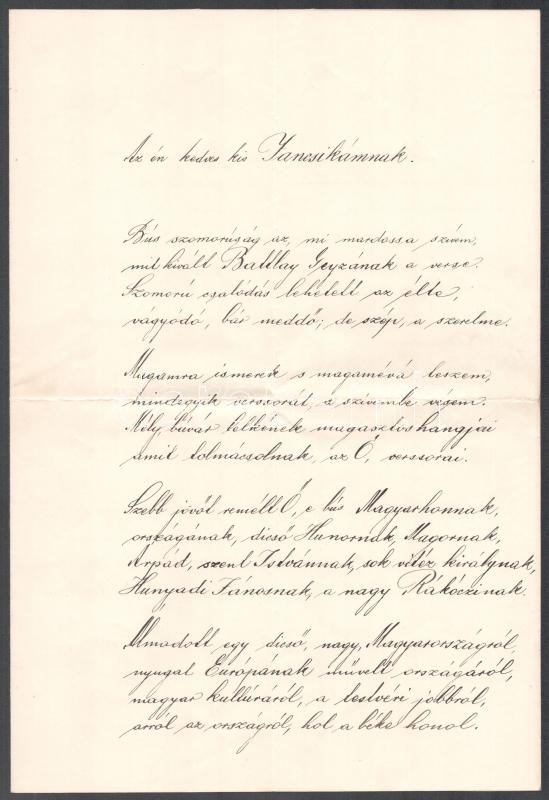 Az én kedves kis Jancsikámnak.
Bús szomorúság az, mi mardossa szívem,
mit kivált Battlay Geyzának a verse.
Szomorú csalódás lehetett az élte,
vágyódó, bár meddő, de szép, a szerelme.
Magamra ismerek s magamévá teszem,
mindegyik verssorát, a szívembe vésem.
Mély, búvár lelkének magasztos hangjai
amit tolmácsolnak, az Ő, verssorai.
Szebb jövőt remélt Ő, e bús Magyarhonnak,
országának, dicső Hunornak, Magornak,
Árpád, szent Istvánnak, sok vitéz királynak,
Hunyadi Jánosnak, a nagy Rákóczinak.
Álmadott egy dicső, nagy, Magyarországról,
nyugat Európának művelt országáról,
magyar kultúráról, a testvéri jobbról,
arról az országról, hol a béke honol.